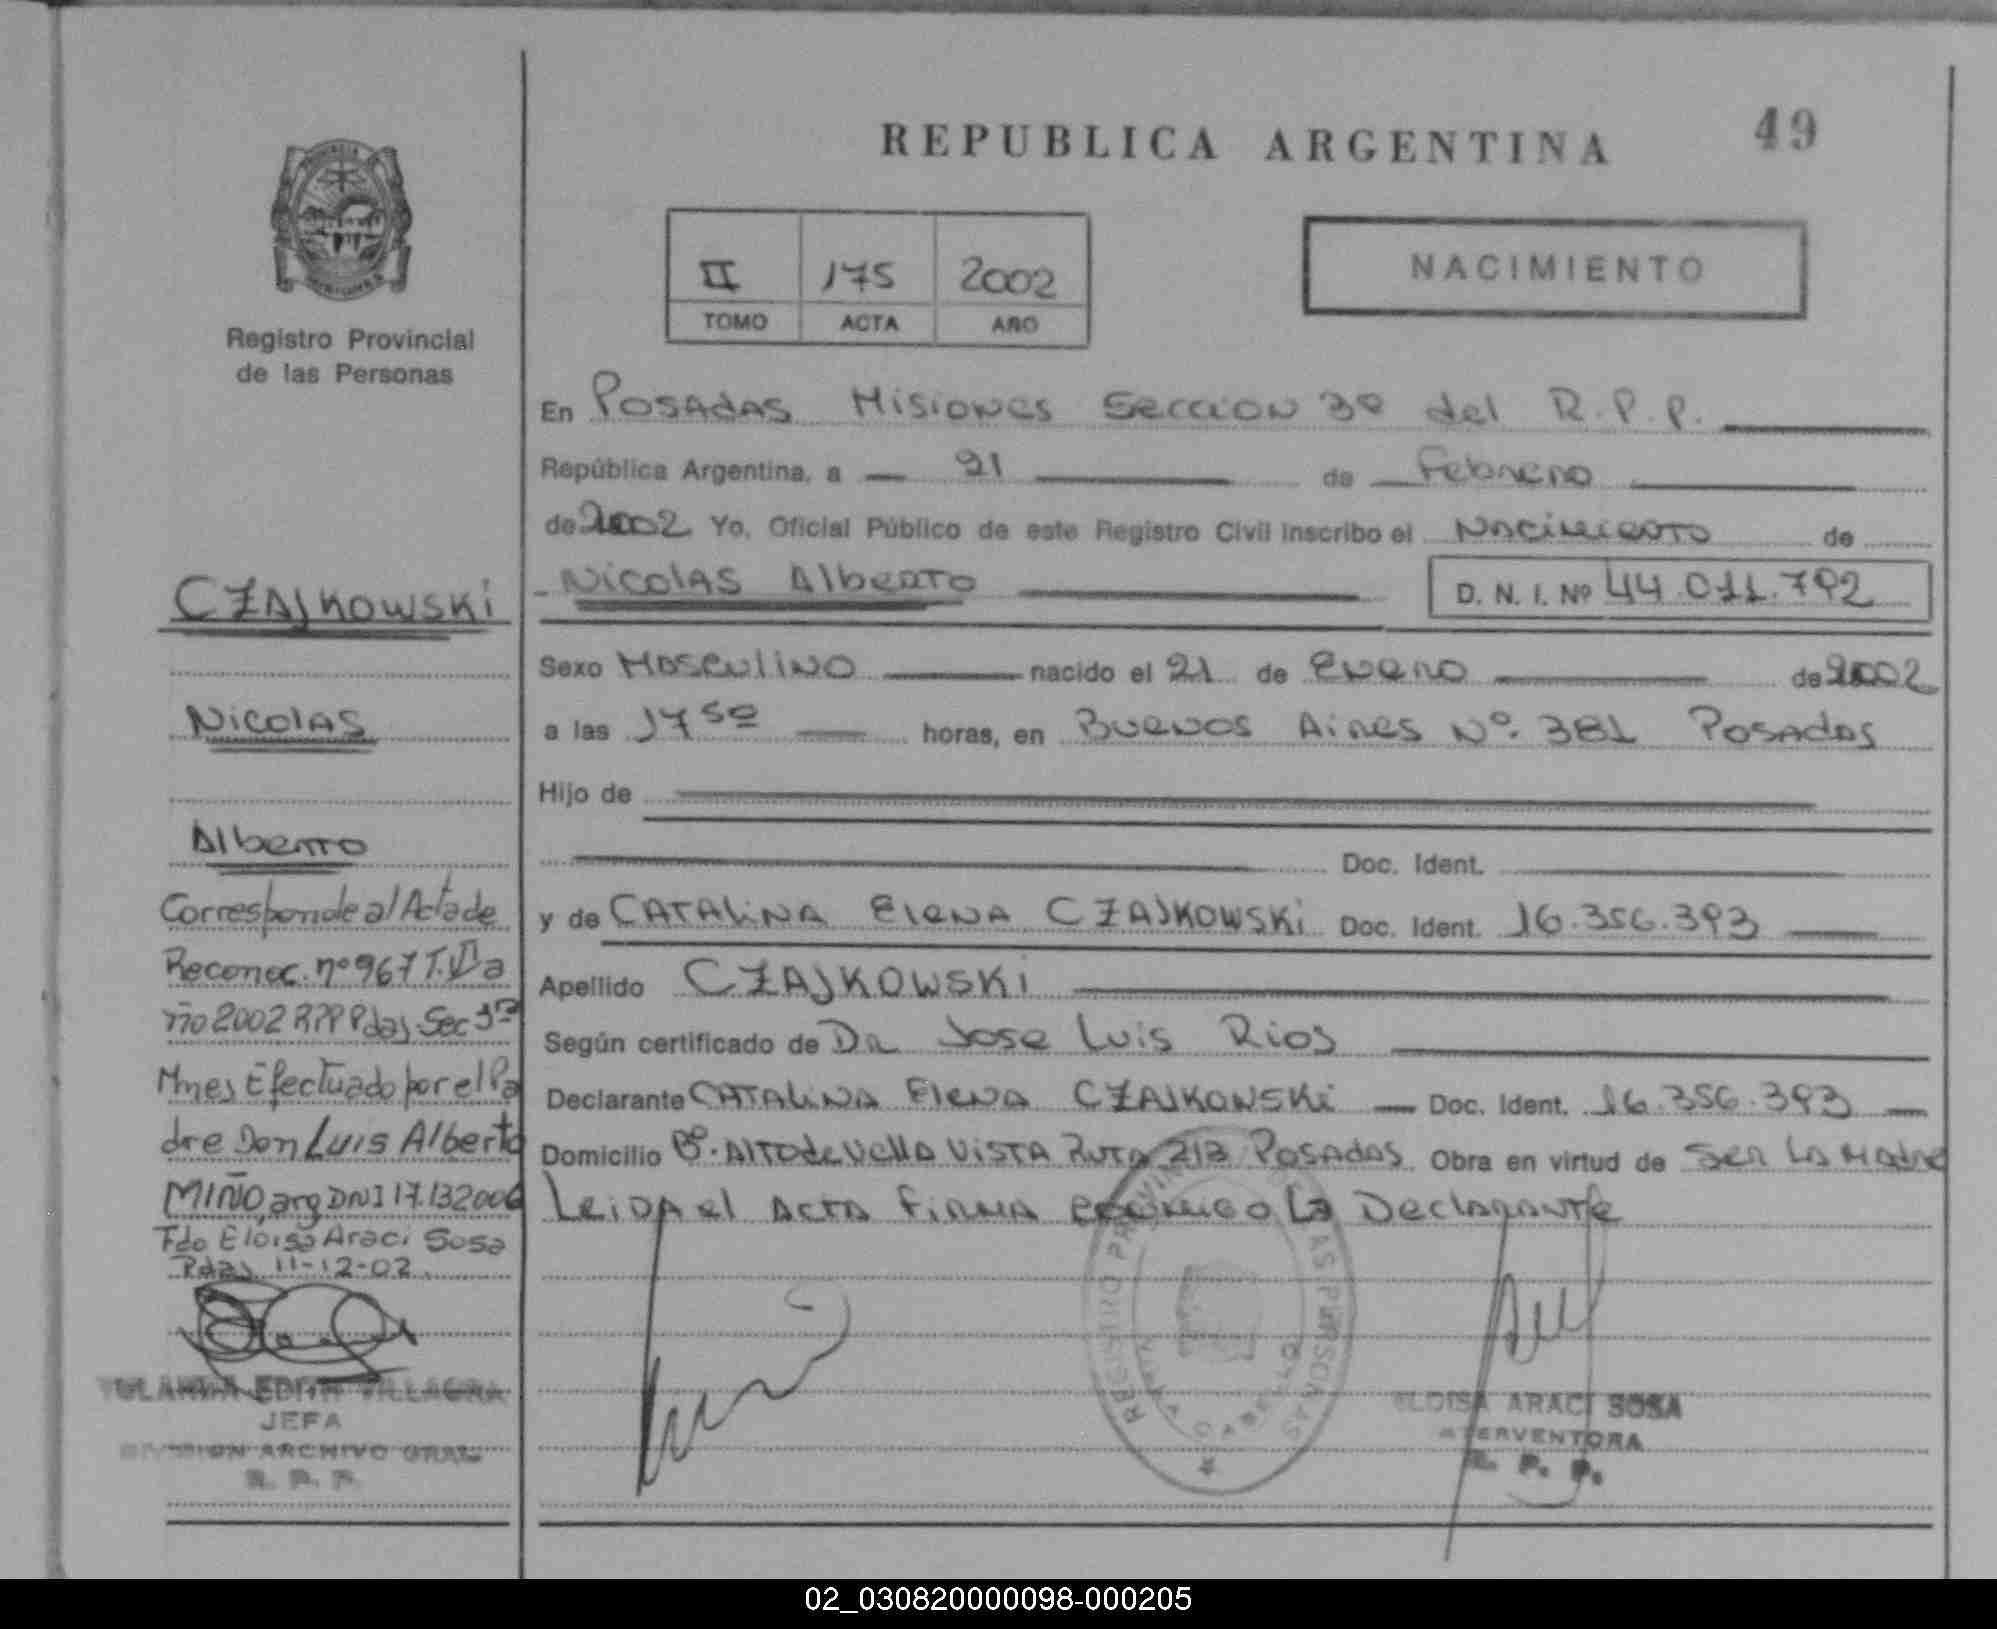 REPUBLICA ARGENTINA 49
Registro Provincial
de las Personas
II 175 2002
TOMO ACTA AÑO
NACIMIENTO
En Posadas Misiones Seccion 3º del R.P.P.
República Argentina, a 21 de Febrero
de 2002 Yo, Oficial Público de este Registro Civil inscribo el Nacimiento de
Nicolas Alberto D. N. I. Nº 44.011.792
Sexo Masculino nacido el 21 de Enero de 2002
a las 17 50 horas, en Buenos Aires Nº. 381 Posadas
Hijo de
Doc. Ident.
y de CATALINA Elena CZAJKOWSKi Doc. Ident. 16.356.393
Apellido CZAJKOWSKi
Según certificado de Dr Jose Luis Rios
Declarante CATALINA Elena CZAJKOWSKi Doc. Ident. 16.356.393
Domicilio Bº. Alto de Vella Vista Ruta 213 Posadas Obra en virtud de Ser La Madre
Leida el Acta Firma conmigo La Declarante
CZAJKOWSKi
Nicolas
Alberto
Corresponde al Acta de
Reconoc. nº 967 T. VI a
ño 2002 RPP Pdas Sec 3ra
Mnes Efectuado por el Pa
dre Don Luis Alberto
MIÑO, arg DNI 17.132006
Fdo Eloisa Araci Sosa
Pdas 11-12-02
YOLANDA EDITH VILLAGRA
JEFA
DIVISION ARCHIVO GRAL
R. P. P.
ELOISA ARACI SOSA
INTERVENTORA
R. P. P.
02_030820000098-000205